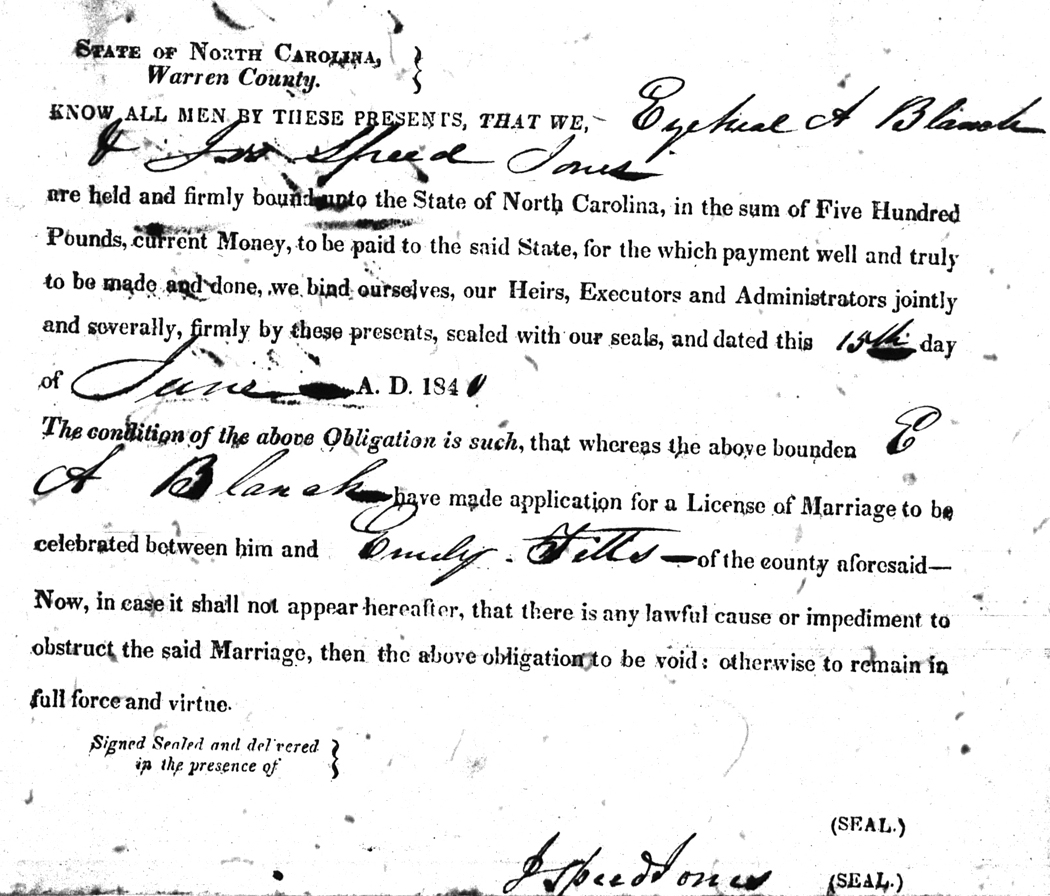 STATE OF NORTH CAROLINA, }
Warren County.
KNOW ALL MEN BY THESE PRESENTS, THAT WE, Ezekieal A Blanch
& Jno Speed Jones
are held and firmly bound unto the State of North Carolina, in the sum of Five Hundred
Pounds, current Money, to be paid to the said State, for the which payment well and truly
to be made and done, we bind ourselves, our Heirs, Executors and Administrators jointly
and severally, firmly by these presents, sealed with our seals, and dated this 15th day
of June A. D. 184
The condition of the above Obligation is such, that whereas the above bounden E
A Blanch have made application for a License of Marriage to be
celebrated between him and Emily Fitts — of the county aforesaid—
Now, in case it shall not appear hereafter, that there is any lawful cause or impediment to
obstruct the said Marriage, then the above obligation to be void: otherwise to remain in
full force and virtue.
Signed Sealed and delivered }
in the presence of
(SEAL.)
J Speed Jones (SEAL.)